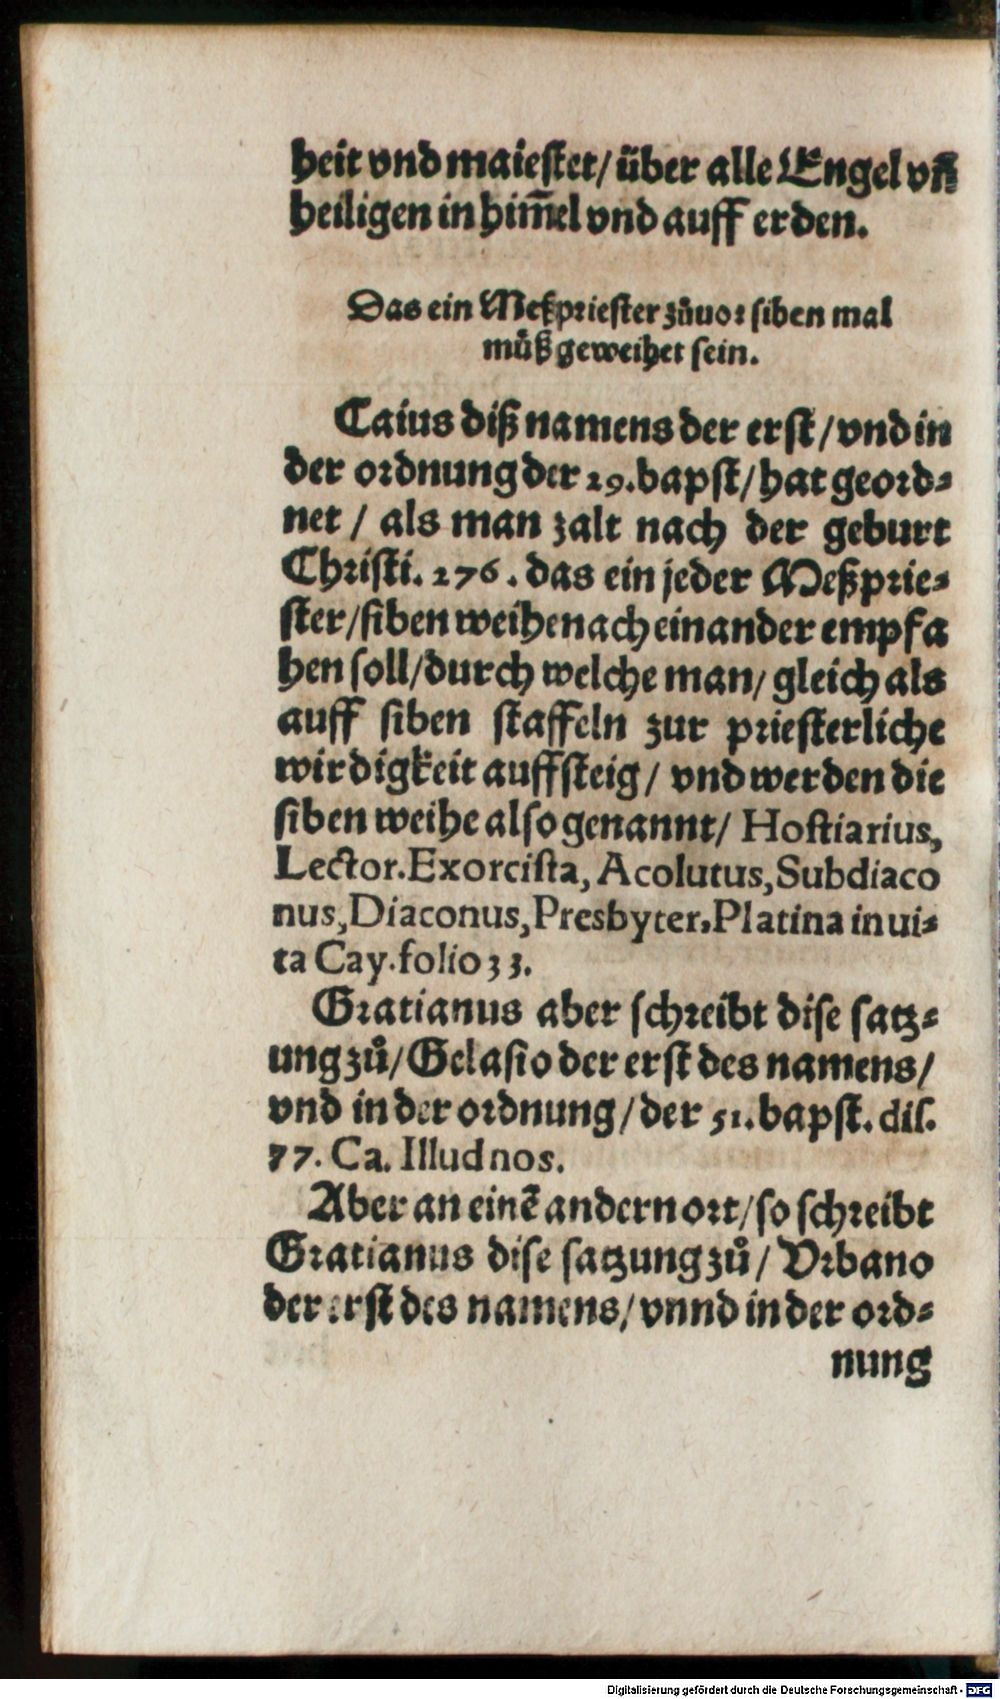 heit vnd maiestet/ über alle Engel vñ
heiligen in him̃el vnd auff erden.
Das ein Meßpriester zůuor siben mal
můß geweihet sein.
Caius diß namens der erst/ vnd in
der ordnung der 29. bapst/ hat geord-
net / als man zalt nach der geburt
Christi. 276. das ein jeder Meßprie-
ster/ siben weihe nach einander empfa
hen soll/ durch welche man/ gleich als
auff siben staffeln zur priesterliche
wirdigkeit auffsteig/ vnd werden die
siben weihe also genannt/ Hostiarius,
Lector. Exorcista, Acolutus, Subdiaco
nus, Diaconus, Presbyter. Platina in vi-
ta Cay. folio 33.
Gratianus aber schreibt dise satz-
ung zů/ Gelasio der erst des namens/
vnd in der ordnung/ der 51. bapst. dis.
77. Ca. Illud nos.
Aber an einē andern ort/ so schreibt
Gratianus dise satzung zů/ Vrbano
der erst des namens/ vnnd in der ord-
nung
Digitalisierung gefördert durch die Deutsche Forschungsgemeinschaft - DFG